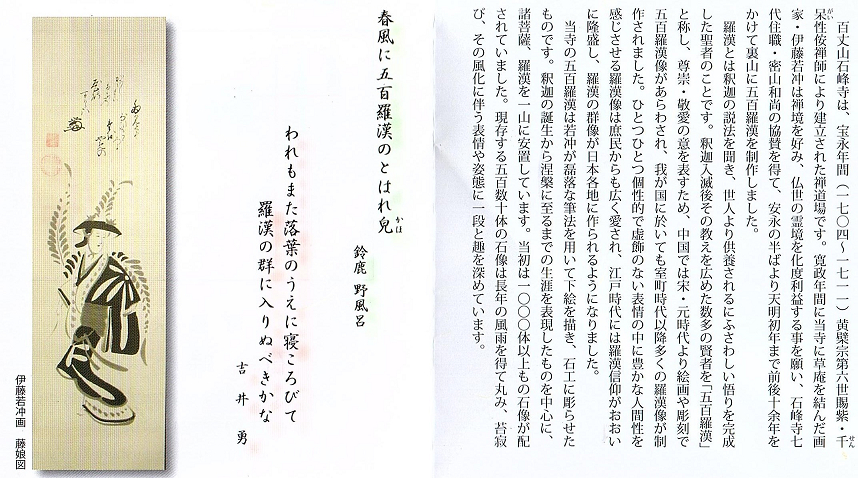 百丈山石峰寺は、宝永年間（一七〇四～一七一一）黄檗宗第六世賜紫・千
呆性侒禅師により建立された禅道場です。寛政年間に当寺に草庵を結んだ画
家・伊藤若冲は禅境を好み、仏世の霊境を化度利益する事を願い、石峰寺七
代住職・密山和尚の協賛を得て、安永の半ばより天明初年まで前後十余年を
かけて裏山に五百羅漢を制作しました。
羅漢とは釈迦の説法を聞き、世人より供養されるにふさわしい悟りを完成
した聖者のことです。釈迦入滅後その教えを広めた数多の賢者を「五百羅漢」
と称し、尊崇・敬愛の意を表すため、中国では宋・元時代より絵画や彫刻で
五百羅漢像があらわされ、我が国に於いても室町時代以降多くの羅漢像が制
作されました。ひとつひとつ個性的で虚飾のない表情の中に豊かな人間性を
感じさせる羅漢像は庶民からも広く愛され、江戸時代には羅漢信仰がおおい
に隆盛し、羅漢の群像が日本各地に作られるようになりました。
当寺の五百羅漢は若冲が磊落な筆法を用いて下絵を描き、石工に彫らせた
ものです。釈迦の誕生から涅槃に至るまでの生涯を表現したものを中心に、
諸菩薩、羅漢を一山に安置しています。当初は一〇〇〇体以上もの石像が配
されていました。現存する五百数十体の石像は長年の風雨を得て丸み、苔寂
び、その風化に伴う表情や姿態に一段と趣を深めています。
春風に五百羅漢のとはれ皃
鈴鹿 野風呂
われもまた落葉のうえに寝ころびて
羅漢の群に入りぬべきかな
吉井 勇
伊藤若冲画 藤娘図